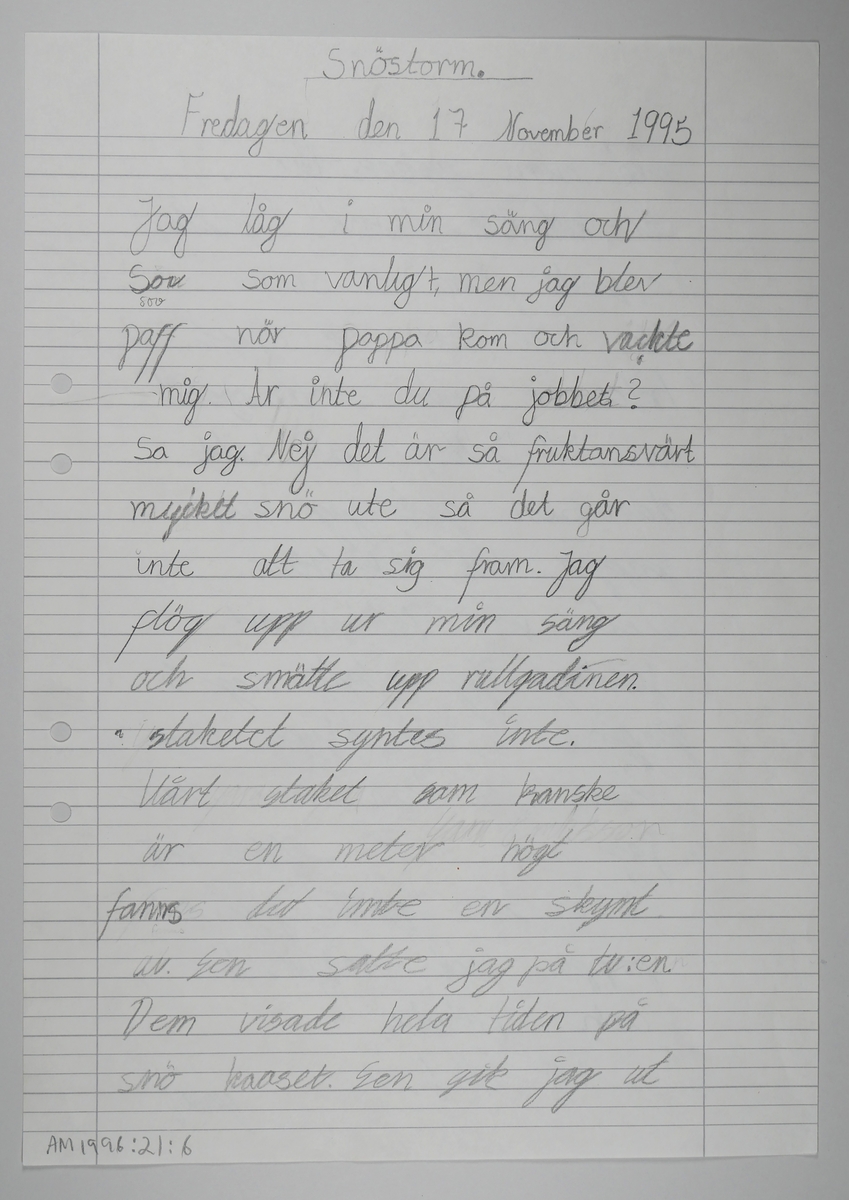 Snöstorm.
Fredagen den 17 November 1995
Jag låg i min säng och
Sov som vanligt, men jag blev
sov
paff när pappa kom och väckte
mig. Är inte du på jobbet?
Sa jag. Nej det är så fruktansvärt
mycket snö ute så det går
inte att ta sig fram. Jag
flög upp ur min säng
och smätte upp rullgadinen.
staketet syntes inte.
Vårt staket som kanske
är en meter högt
fanns det inte en skymt
av. Sen satte jag på tv:en
Dem visade hela tiden på
snö kaoset. Sen gik jag ut
AM1996:21:6